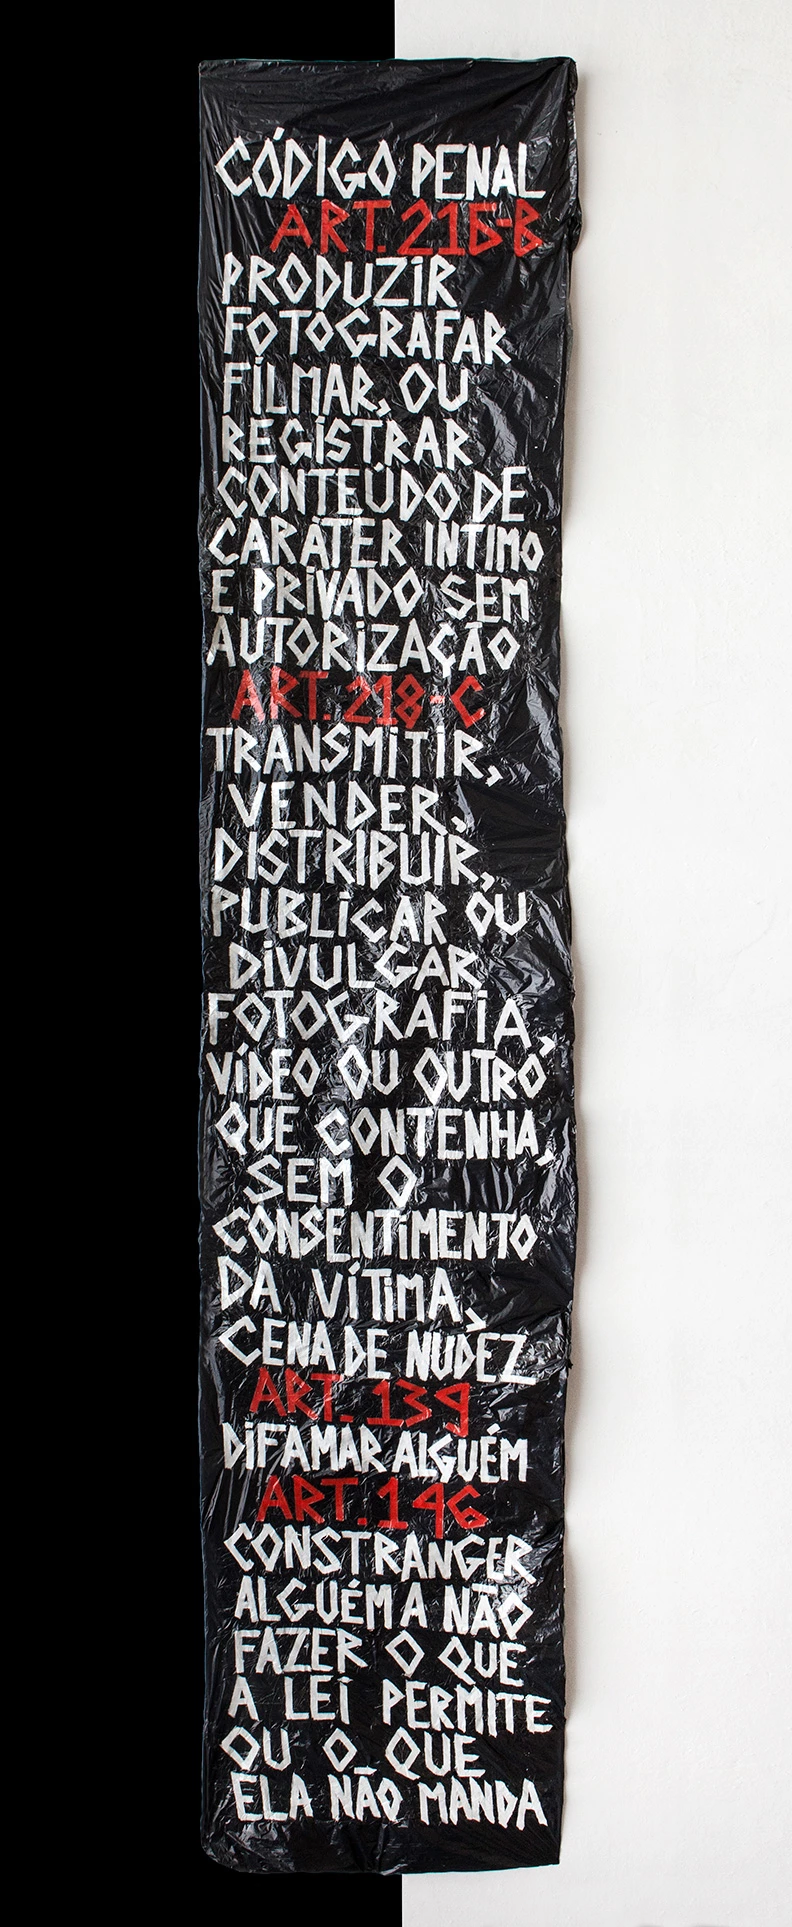 CÓDIGO PENAL
ART. 216-B
PRODUZIR
FOTOGRAFAR
FILMAR, OU
REGISTRAR
CONTEÚDO DE
CARÁTER INTIMO
E PRIVADO SEM
AUTORIZAÇÃO
ART. 218-C
TRANSMITIR,
VENDER,
DISTRIBUIR,
PUBLICAR OU
DIVULGAR
FOTOGRAFIA,
VÍDEO OU OUTRO
QUE CONTENHA,
SEM O
CONSENTIMENTO
DA VÍTIMA,
CENA DE NUDEZ
ART. 139
DIFAMAR ALGUÉM
ART. 146
CONSTRANGER
ALGUÉM A NÃO
FAZER O QUE
A LEI PERMITE
OU O QUE
ELA NÃO MANDA